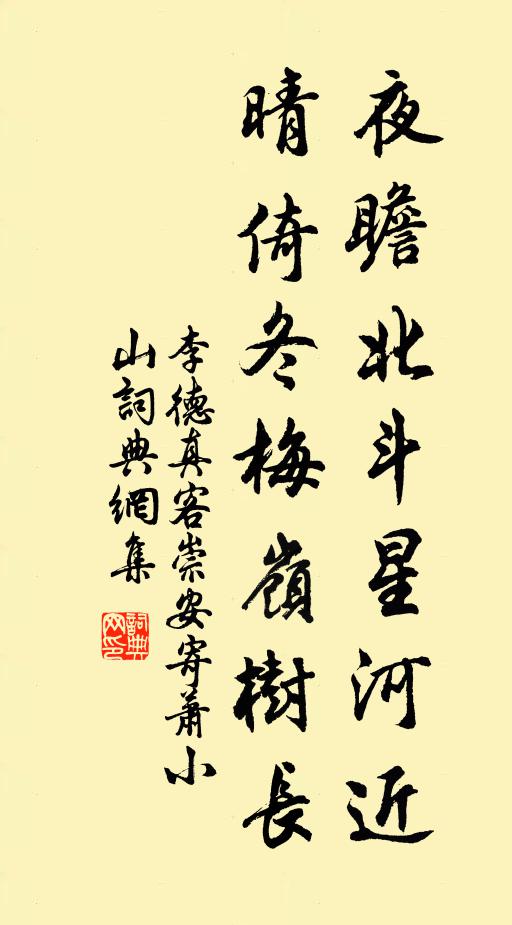 夜瞻北斗星河近
晴倚冬梅嶺樹長
李德真客崇安寄蕭小
山詞典網集
詞典
网印